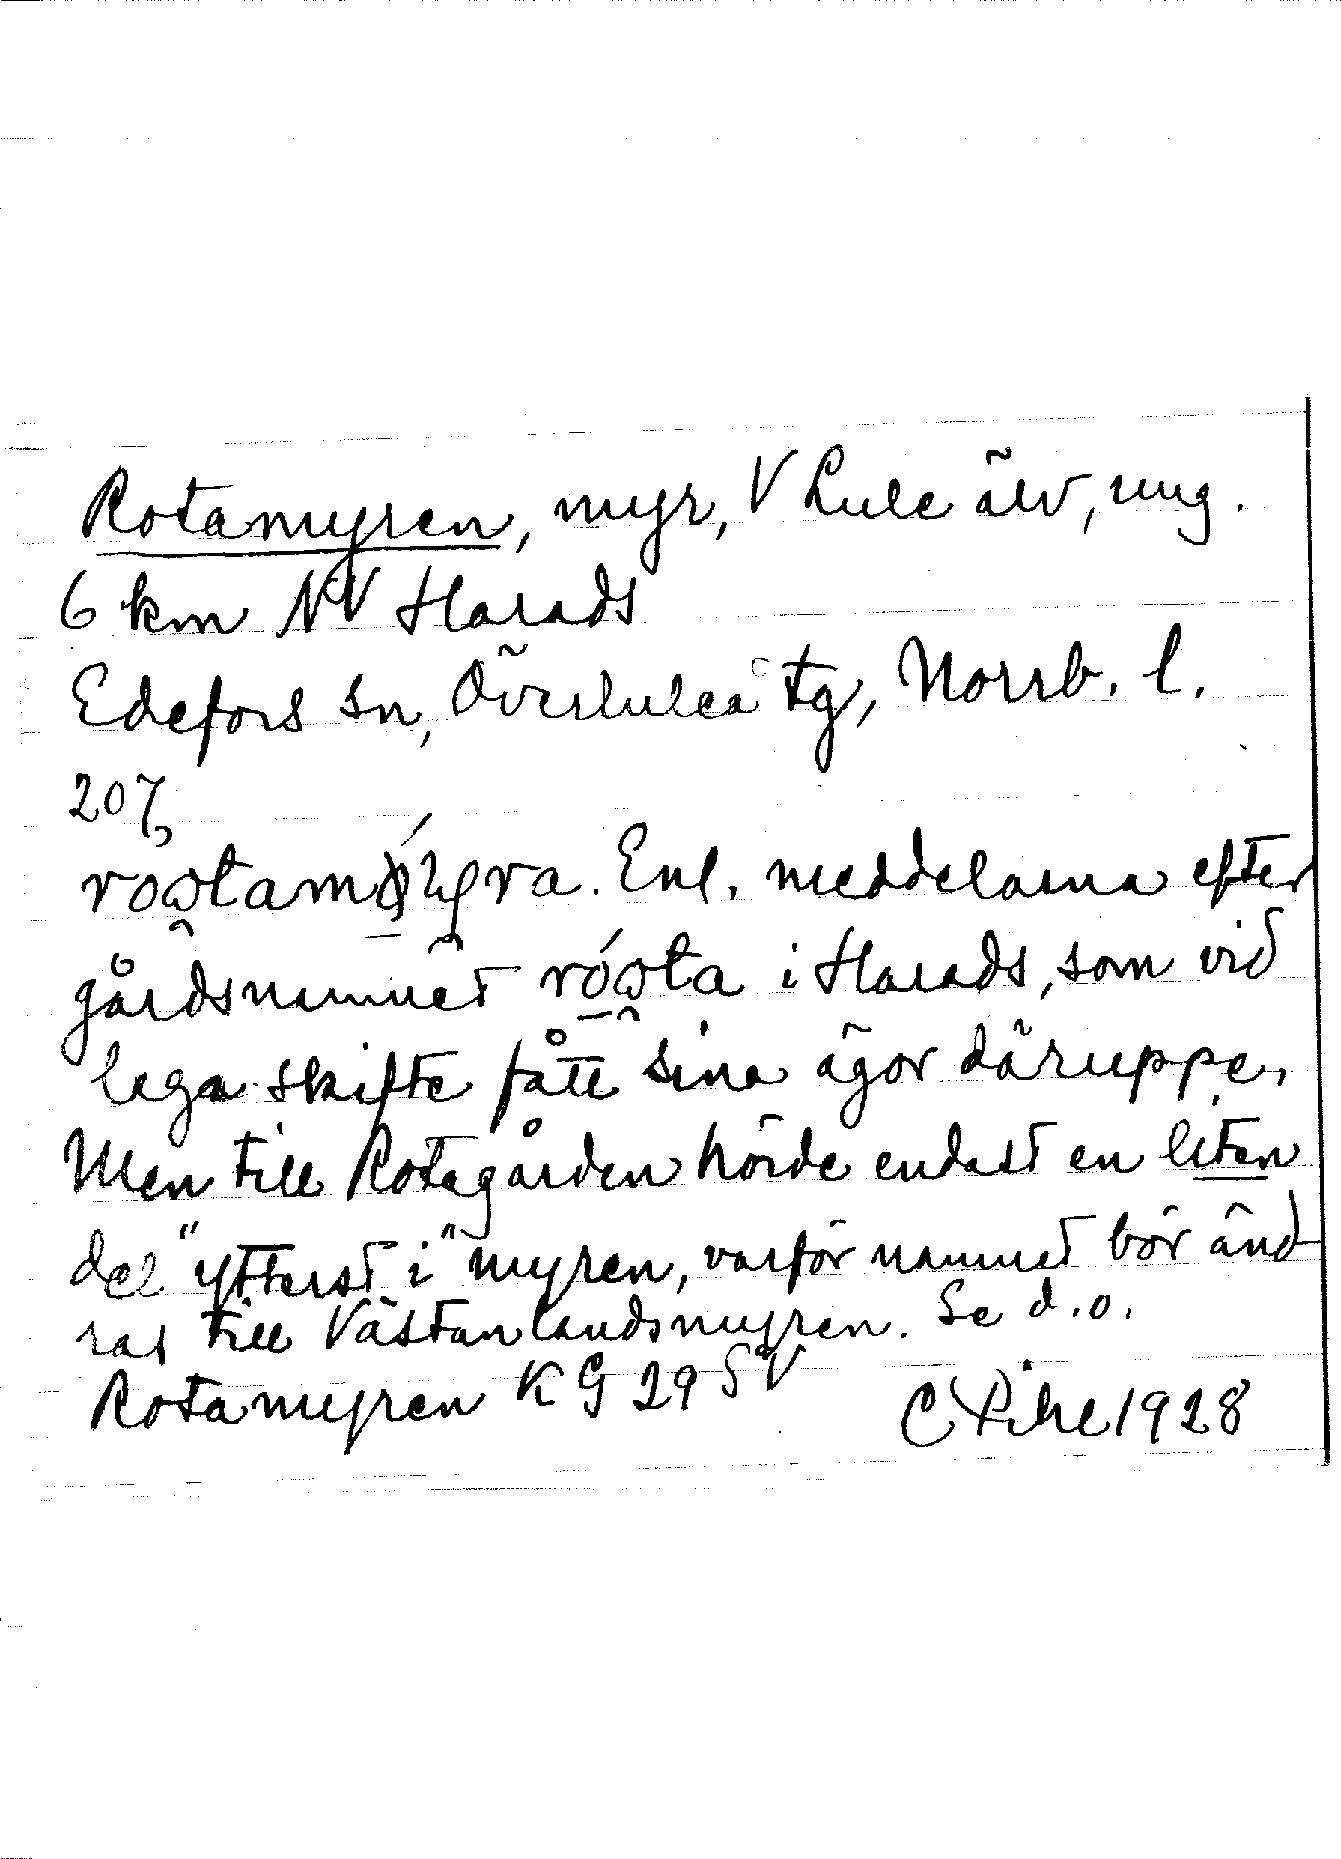 Rotamyren, myr, V Lule älv, ung.
6 km NV Harads
Edefors sn, Överluleå tg, Norrb. l.
207
Enl. meddelarna efter
gårdsnamnet i Harads, som vid
laga skifte fått sina ägor däruppe.
Men till Rotagården hörde endast en liten
del "ytterst i" myren, varför namnet bör änd-
ras till Västanlandsmyren. Se d.o.
Rotamyren KG 29 SV
C Pihl 1928